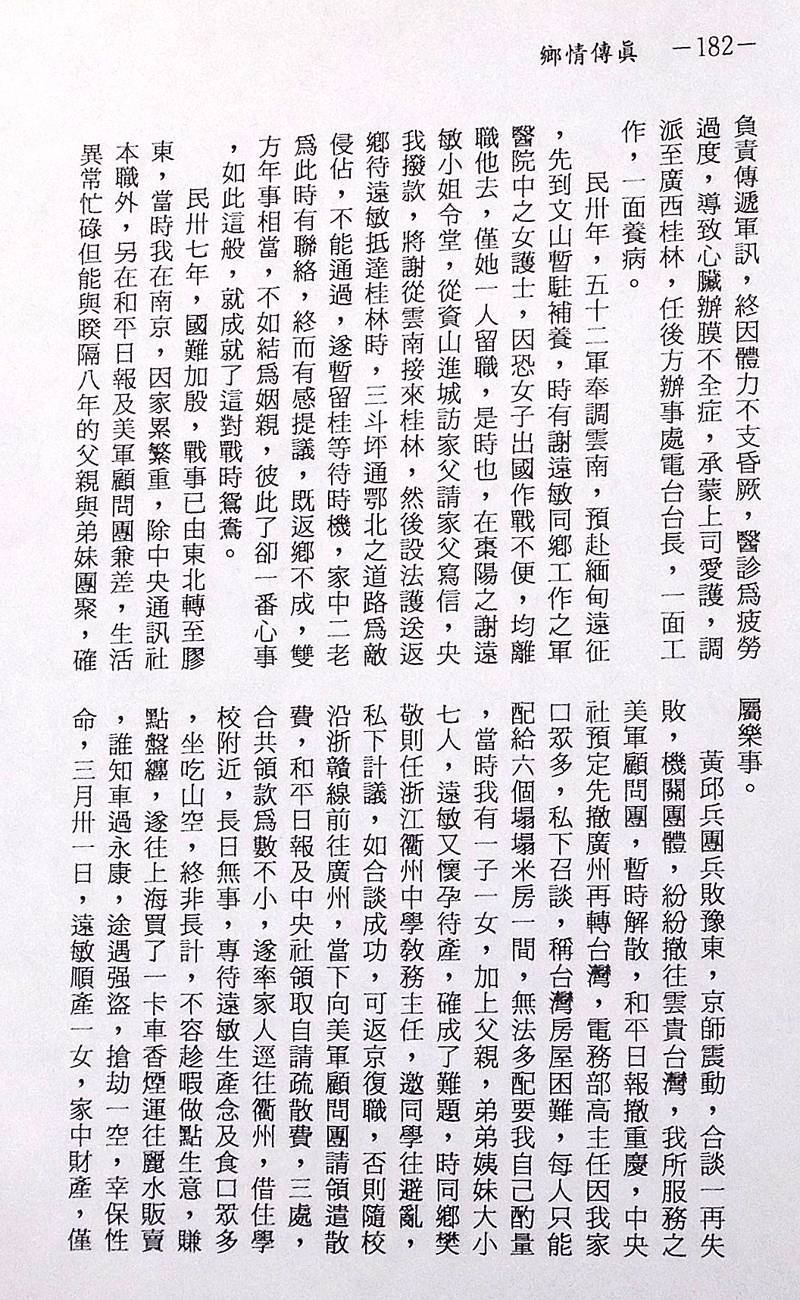 鄉情傳眞　—182—
負責傳遞軍訊，終因體力不支昏厥，醫診爲疲勞
過度，導致心臟辦膜不全症，承蒙上司愛護，調
派至廣西桂林，任後方辦事處電台台長，一面工
作，一面養病。
民卅年，五十二軍奉調雲南，預赴緬甸遠征
，先到文山暫駐補養，時有謝遠敏同鄉工作之軍
醫院中之女護士，因恐女子出國作戰不便，均離
職他去，僅她一人留職，是時也，在棗陽之謝遠
敏小姐令堂，從資山進城訪家父請家父寫信，央
我撥款，將謝從雲南接來桂林，然後設法護送返
鄉待遠敏抵達桂林時，三斗坪通鄂北之道路爲敵
侵佔，不能通過，遂暫留桂等待時機，家中二老
爲此時有聯絡，終而有感提議，既返鄉不成，雙
方年事相當，不如結爲姻親，彼此了卻一番心事
，如此這般，就成就了這對戰時鴛鴦。
民卅七年，國難加殷，戰事已由東北轉至膠
東，當時我在南京，因家累繁重，除中央通訊社
本職外，另在和平日報及美軍顧問團兼差，生活
異常忙碌但能與睽隔八年的父親與弟妹團聚，確
屬樂事。
黃邱兵團兵敗豫東，京師震動，合談一再失
敗，機關團體，紛紛撤往雲貴台灣，我所服務之
美軍顧問團，暫時解散，和平日報撤重慶，中央
社預定先撤廣州再轉台灣，電務部高主任因我家
口眾多，私下召談，稱台灣房屋困難，每人只能
配給六個塌塌米房一間，無法多配要我自己酌量
，當時我有一子一女，加上父親，弟弟姨妹大小
七人，遠敏又懷孕待產，確成了難題，時同鄉樊
敬則任浙江衢州中學敎務主任，邀同學往避亂，
私下計議，如合談成功，可返京復職，否則隨校
沿浙贛線前往廣州，當下向美軍顧問團請領遣散
費，和平日報及中央社領取自請疏散費，三處，
合共領款爲數不小，遂率家人逕往衢州，借住學
校附近，長日無事，專待遠敏生產念及食口眾多
，坐吃山空，終非長計，不容趁暇做點生意，賺
點盤纏，遂往上海買了一卡車香煙運往麗水販賣
，誰知車過永康，途遇强盜，搶劫一空，幸保性
命，三月卅一日，遠敏順產一女，家中財產，僅